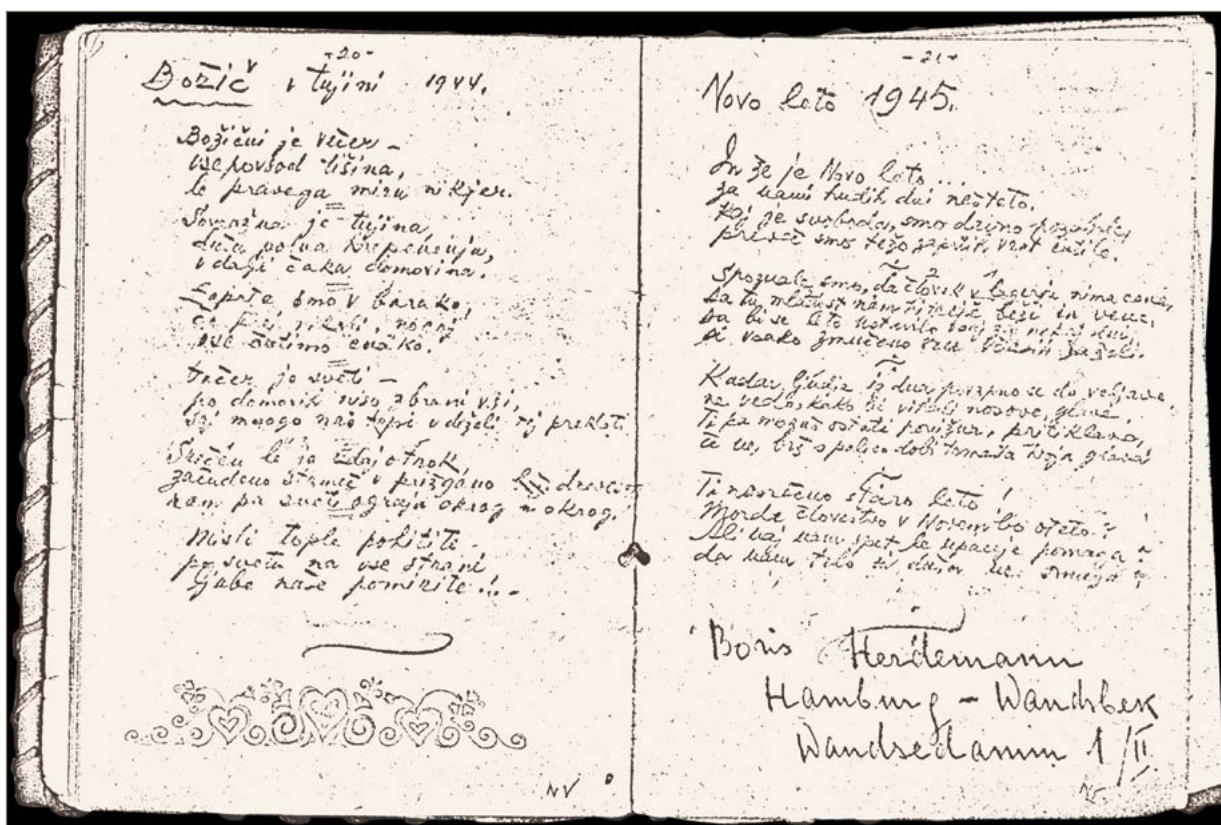 -20-
Božič v tujini 1944.
Božični je večer –
vse povsod tišina,
le pravega miru nikjer.
je tujina,
duša polna hrepenenja,
v dalji čaka domovina.
Zaprte smo v barako,
vse čutimo enako.
Večer je sveti –
po domovih so zbrani vsi,
saj mnogo nas trpi v deželi tej prekleti
Srečen le je zdaj otrok,
začudeno strmeč v prižgano
nam pa sveti ograja okrog in okrog.
Misli tople pohitite
po svetu na vse strani
ljube naše pomirite!..
NV
-21-
Novo leto 1945.
In že je Novo leto...
za nami hudih dni nešteto.
Kaj je svoboda, smo davno pozabile,
smo težo
Spoznale smo, da človek v lagerju nima cene,
da tu mladost nam beži in vene,
da bi se leto ustavilo vsaj za nekaj dni,
si vsako zmučeno srce želi.
Kadar ljudje iz dna do veljave
ne vedo, kako bi vihali nosove, glave
Ti pa moraš ostati
dobi tvoja glava
Ti nesrečno staro leto!
Morda človeštvo v Novem bo oteto?
Ali naj nam spet le upanje pomaga
da nam telo in duša ne omaga
Boris Herdemann
Hamburg – Wandsbek
Wandsedamm 1/II